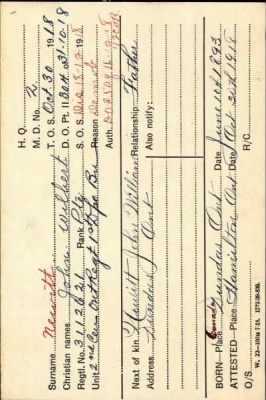 H. Q.
M. D. No. 2
T. O. S. Oct 30 1918
D. O. Pt. II 304 31-10-18
S. O. S. Dec 15-12-1918
Reason Demob
Auth.
Surname Hewitt
Christian names John Wilbert
Regtl. No. 3112621 Rank Pte
Unit 2nd Cen. Ont Regt 1st Depo Bn
Next of kin Hewitt John William Relationship Father
Address Dundas Ont
Also notify:
BORN—Place Canada Dundas Ont Date June 1st 1893
ATTESTED—Place Hamilton Ont Date Oct 30th 1918
O/S